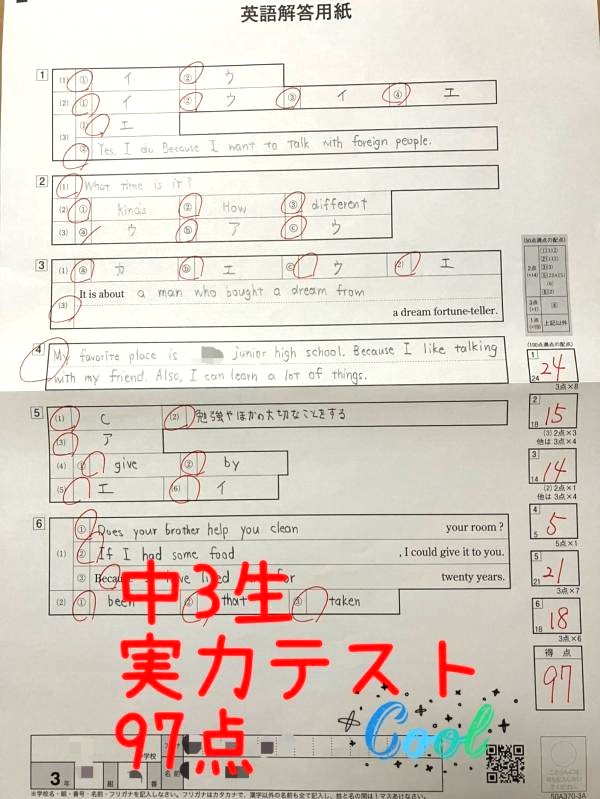 英語解答用紙
1 (1) ① イ ② ウ
(2) ① イ ② ウ ③ イ ④ エ
(3) ① エ
② Yes, I do. Because I want to talk with foreign people.
2 (1) What time is it?
(2) ① kinds ② How ③ different
(3) ⓐ ウ ⓑ ア ⓒ ウ
3 (1) ⓐ カ ⓑ エ ⓒ ウ (2) エ
(3) It is about a man who bought a dream from
a dream fortune-teller.
4 My favorite place is junior high school. Because I like talking
with my friend. Also, I can learn a lot of things.
5 (1) C (2) 勉強やほかの大切なことをする
(3) ア
(4) ① give ② by
(5) エ (6) イ
6 (1) ① Does your brother help you clean your room ?
② If I had some food , I could give it to you.
③ Because I have lived for twenty years.
(2) ① been ② that ③ taken
(50点満点の配点)
2点
3点
1点
上記以外
(100点満点の配点)
1 24 24
3点×8
2 15 18
(3) 2点×3
他は 3点×4
3 14 14
(2) 2点×1
他は 3点×4
4 5 5
5点×1
5 21 21
3点×7
6 18 18
3点×6
得点
97
中3生
実力テスト
97点
Cool
学校
3年 組 番 名前
※学校名・組・番号・名前・フリガナを記入しなさい。フリガナはカタカナで、漢字以外の名前も全て記入し、姓と名の間は1マスあけなさい。
50A370-3A